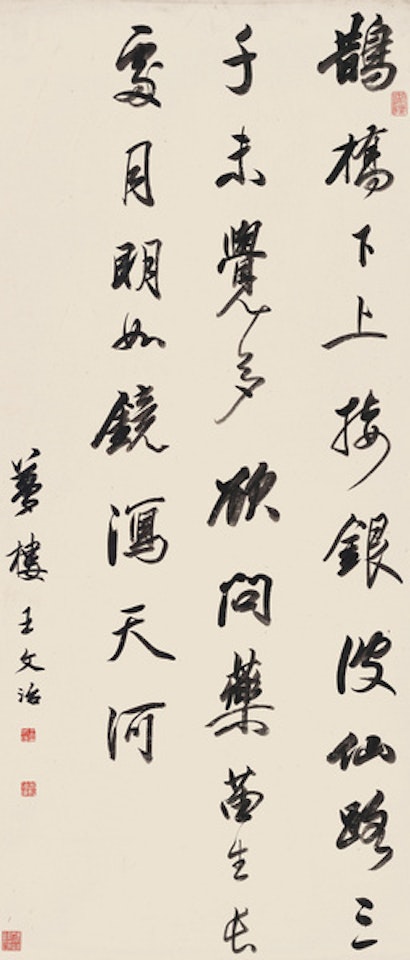 鵲橋下上接銀波仙路三
千未覺多欲問藥苗生長
處月明如鏡瀉天河
夢樓王文治